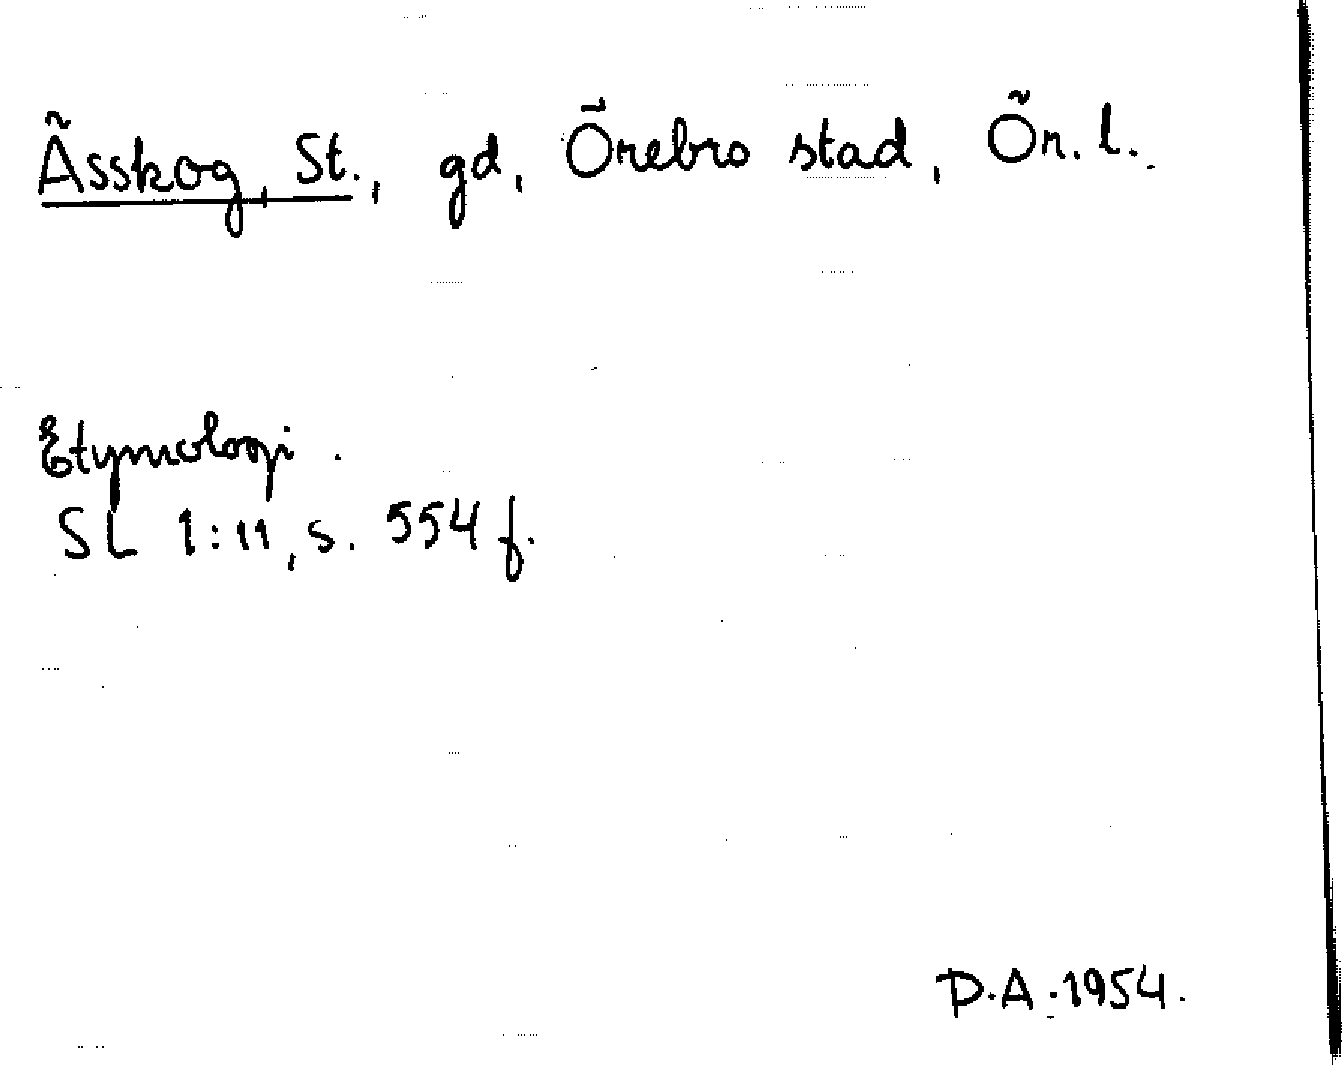 Ässkog, St., gd, Örebro stad, Ör. l.
Etymologi.
SL 1:11, s. 554 f.
P.A. 1954.